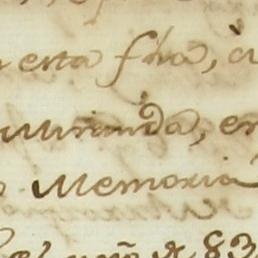 esta fha, 
Miranda, en
Memoria
año de 83